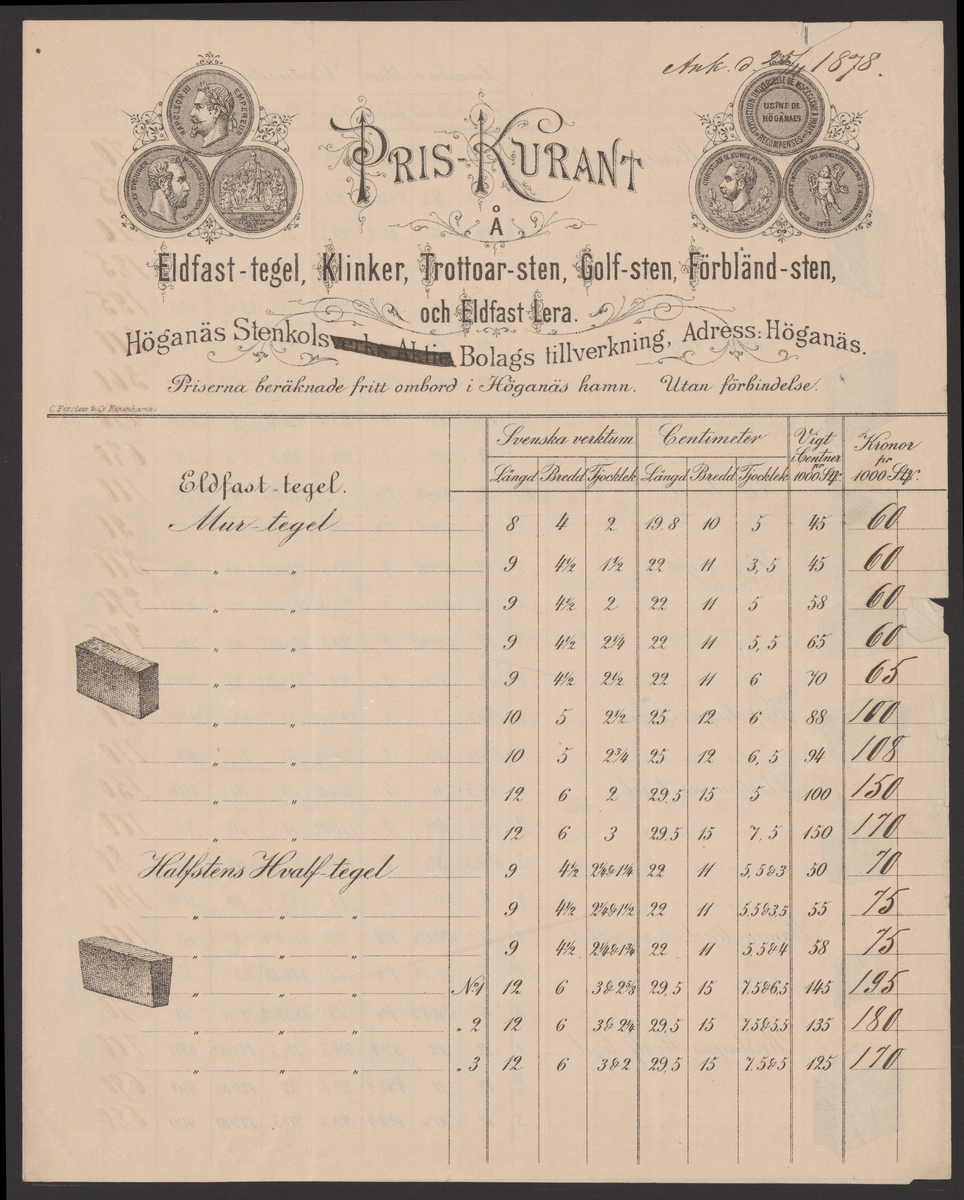 Ank. d. 25/11 1878.
NAPOLEON III EMPEREUR
USINE DE HÖGANÄES
EXPOSITION UNIVERSELLE DE
RECOMPENSES
1872
PRIS-KURANT
Å
Eldfast-tegel, Klinker, Trottoar-sten, Golf-sten, Förbländ-sten,
och Eldfast Lera.
Höganäs Stenkolsverks Aktie Bolags tillverkning, Adress: Höganäs.
Priserna beräknade fritt ombord i Höganäs hamn. Utan förbindelse.
C. Ferslew & Co Kopenhamn.
Svenska verktum Centimeter Vigt i Centner pr 1000 St. Kronor pr 1000 St.
Längd Bredd Tjocklek Längd Bredd Tjocklek
Eldfast-tegel.
Mur-tegel 8 4 2 19.8 10 5 45 60
" " 9 4½ 1½ 22 11 3,5 45 60
" " 9 4½ 2 22 11 5 58 60
" " 9 4½ 2¼ 22 11 5,5 65 60
" " 9 4½ 2½ 22 11 6 70 65
" " 10 5 2½ 25 12 6 88 100
" " 10 5 2¾ 25 12 6,5 94 108
" " 12 6 2 29,5 15 5 100 150
" " 12 6 3 29.5 15 7,5 150 170
Halfstens Hvalf-tegel 9 4½ 2¼&1¼ 22 11 5,5&3 50 70
" " " 9 4½ 2¼&1½ 22 11 5,5&3,5 55 75
" " " 9 4½ 2¼&1¾ 22 11 5,5&4 58 75
" " " No 1 12 6 3&2⅝ 29,5 15 7,5&6,5 145 195
" " " " 2 12 6 3&2¼ 29.5 15 7,5&5,5 135 180
" " " " 3 12 6 3&2 29,5 15 7,5&5 125 170